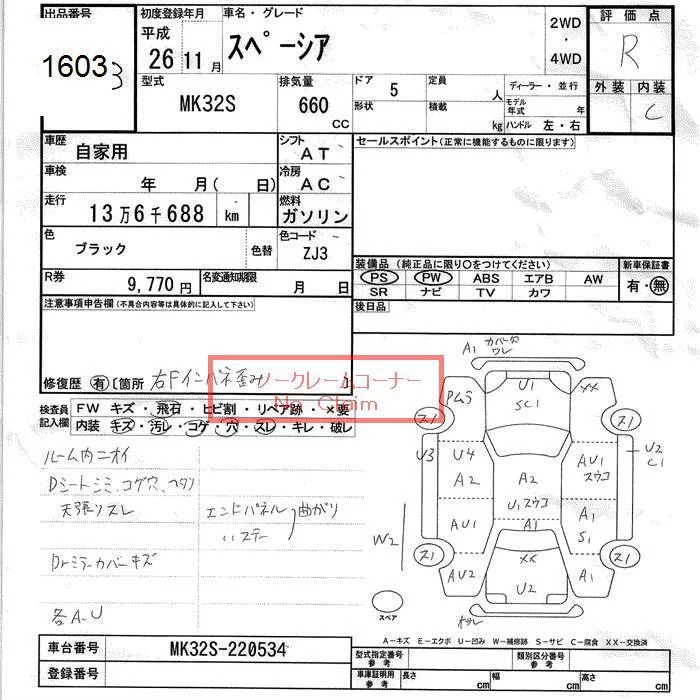 出品番号
1603 3
初度登録年月
平成
26 11月
車名・グレード
スペーシア
2WD
・
4WD
評価点
R
外装 内装
C
型式
MK32S
排気量
660 CC
ドア 5
定員 人
形状
積載 kg
ディーラー・並行
モデル年式 年
ハンドル 左・右
車歴
自家用
シフト
AT
セールスポイント(正常に機能するものに限ります)
車検
年 月( 日)
冷房
AC
走行
13万6千688 km
燃料
ガソリン
色
ブラック
色替
色コード
ZJ3
装備品(純正品に限り〇をつけてください)
新車保証書
PS PW ABS エアB AW
SR ナビ TV カワ
有・無
R券
9,770円
名変通知期限
月 日
後日品
注意事項申告欄(不具合内容等は具体的に記入して下さい)
修復歴 有 〔箇所 右Fインパネ歪み 〕
ノークレームコーナー
No Claim
検査員記入欄
FW キズ・飛石・ヒビ割・リペア跡・×要
内装 キズ・汚レ・コゲ・穴・スレ・キレ・破レ
ルーム内ニオイ
Dシートシミ、コゲ穴、ヘタリ
天張リスレ
エンドパネル
〃ステー
曲がり
Drミラーカバーキズ
各A.U
A1 カバー穴
ワレ
Pムラ
U1
SC1
××
ス1
ス1
U3
U4
A2
A2
AU1
スウコ
U2
C1
U1スウコ
A1
AU1
A1
S1
W2
ス1
ス1
××
AU2
U2
A1
スペア
A-キズ E-エクボ U-凹み W-補修跡 S-サビ C-腐食 XX-交換済
車台番号
MK32S-220534
登録番号
型式指定番号
参考
類別区分番号
参考
車庫証明用
参考
長さ cm
幅 cm
高さ cm